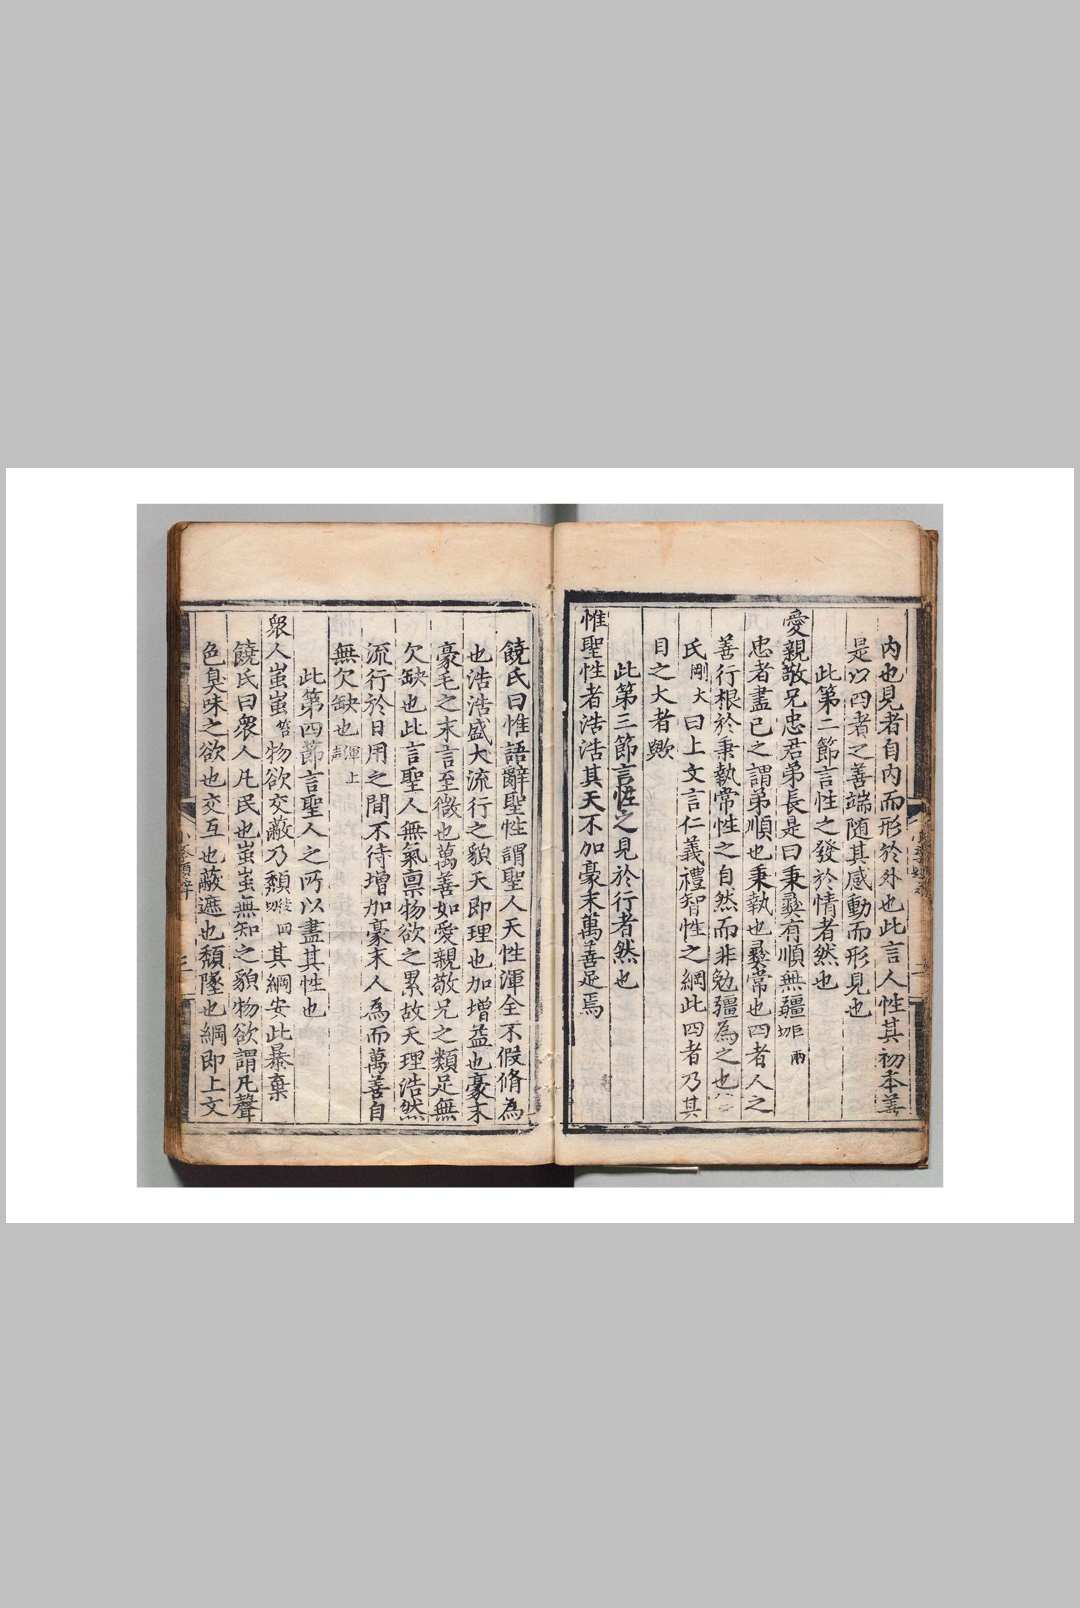 内也見者自内而形於外也此言人性其初本善
是以四者之善端随其感動而形見也
此第二節言性之發於情者然也
愛親敬兄忠君弟長是曰秉彝有順無疆
忠者盡已之謂弟順也秉執也彝常也四者人之
善行根於秉執常性之自然而非勉疆為之也
氏剛大曰上文言仁義禮智性之綱此四者乃其
目之大者歟
此第三節言性之見於行者然也
惟聖性者浩浩其天不加豪末萬善足焉
饒氏曰惟語辭聖性謂聖人天性渾全不假脩為
也浩浩盛大流行之貌天即理也加増益也豪末
豪毛之末言至微也萬善如愛親敬兄之類足無
欠缺也此言聖人無氣稟物欲之累故天理浩然
流行於日用之間不待增加豪末人為而萬善自
無欠缺也渾上声
此第四節言聖人之所以盡其性也
衆人蚩蚩笞物欲交蔽乃頹其綱安此暴棄
饒氏曰衆人凡民也蚩蚩無知之貌物欲謂凡聲
色臭味之欲也交互也蔽遮也頹墜也綱即上文
三